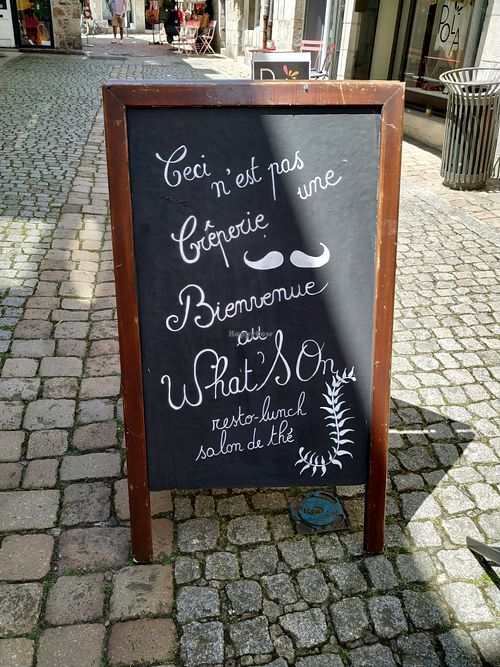 Ceci n'est pas une
Crêperie
Bienvenue
au
What'SOn
resto-lunch
salon de thé
HappyCow